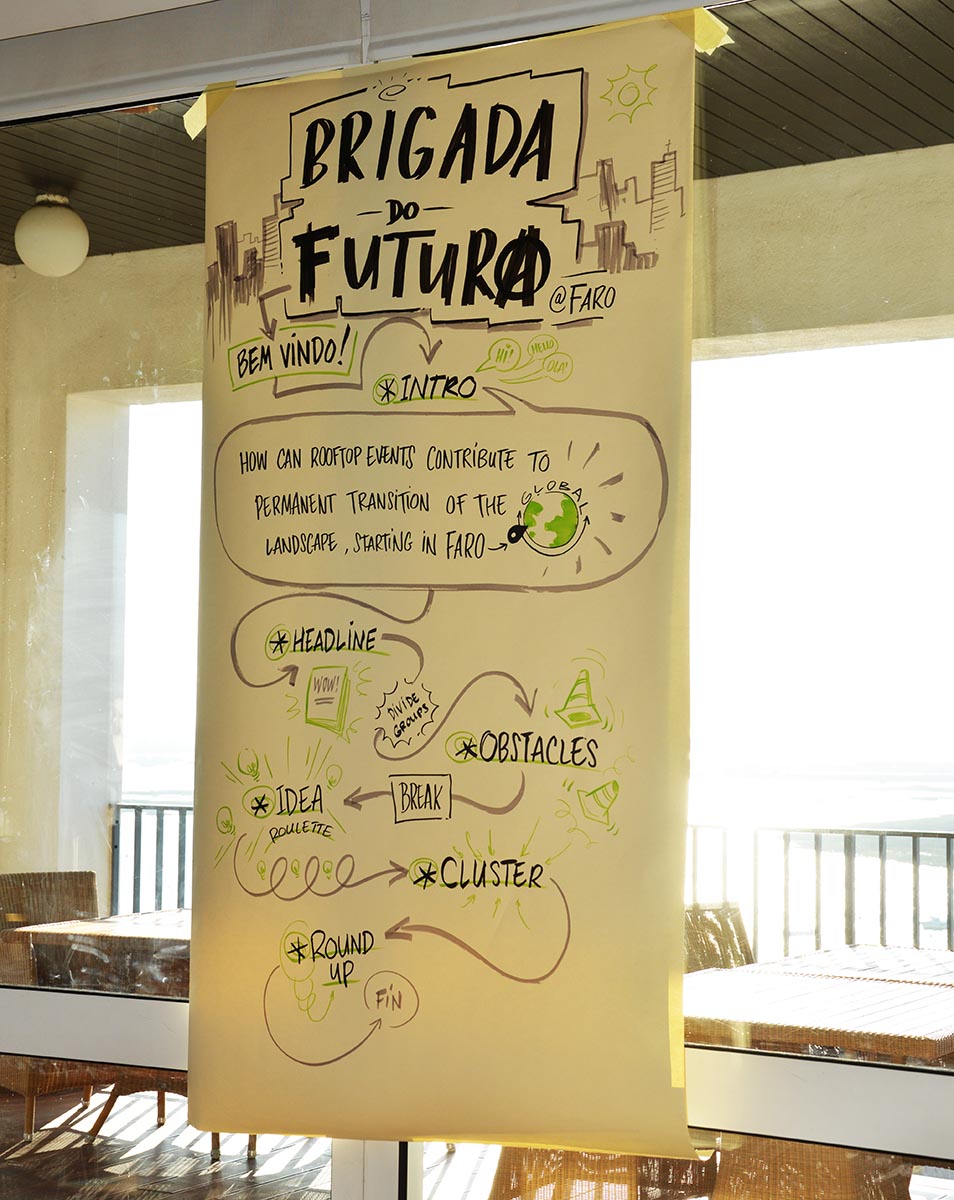 BRIGADA
DO
FUTURA
@FARO
BEM VINDO!
* INTRO
Hi!
HELLO
OLA!
HOW CAN ROOFTOP EVENTS CONTRIBUTE TO
PERMANENT TRANSITION OF THE
LANDSCAPE, STARTING IN FARO
GLOBAL
* HEADLINE
WOW!
DIVIDE
GROUPS
* OBSTACLES
BREAK
* IDEA
ROULETTE
* CLUSTER
* ROUND
UP
FIN